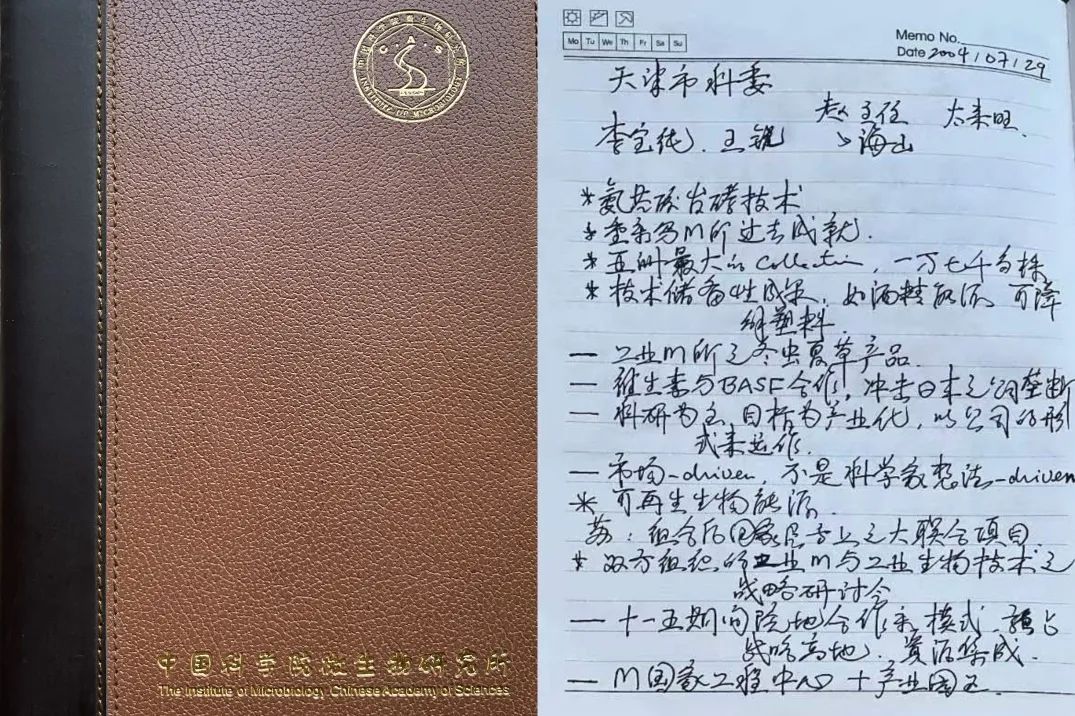 中国科学院微生物研究所
The Institute of Microbiology Chinese Academy of Sciences
Memo No.
Mo Tu We Th Fr Sa Su
Date 2004/07/29
天津市科委
赵主任
李宝纯、王锐
海山
*氨基酸发酵技术
*重系为M所过去成就.
*亚洲最大的Collection,一万七千多株
*技术储备性成果,如酒精能源、可降
解塑料.
— 工业M所之冬虫夏草产品.
— 维生素与BASF合作,冲击日本之公司垄断
— 科研为主,目标为产业化,以公司的形
式来运作.
— 市场-driven,不是科学家想法-driven
*可再生生物能源.
苏:组合后国家层市上之大联合项目.
*双方组织的工业M与工业生物技术之
战略研讨会
— 十一五期间院地合作新模式,预占
战略高地、资源集成.
— M国家工程中心+产业园区.